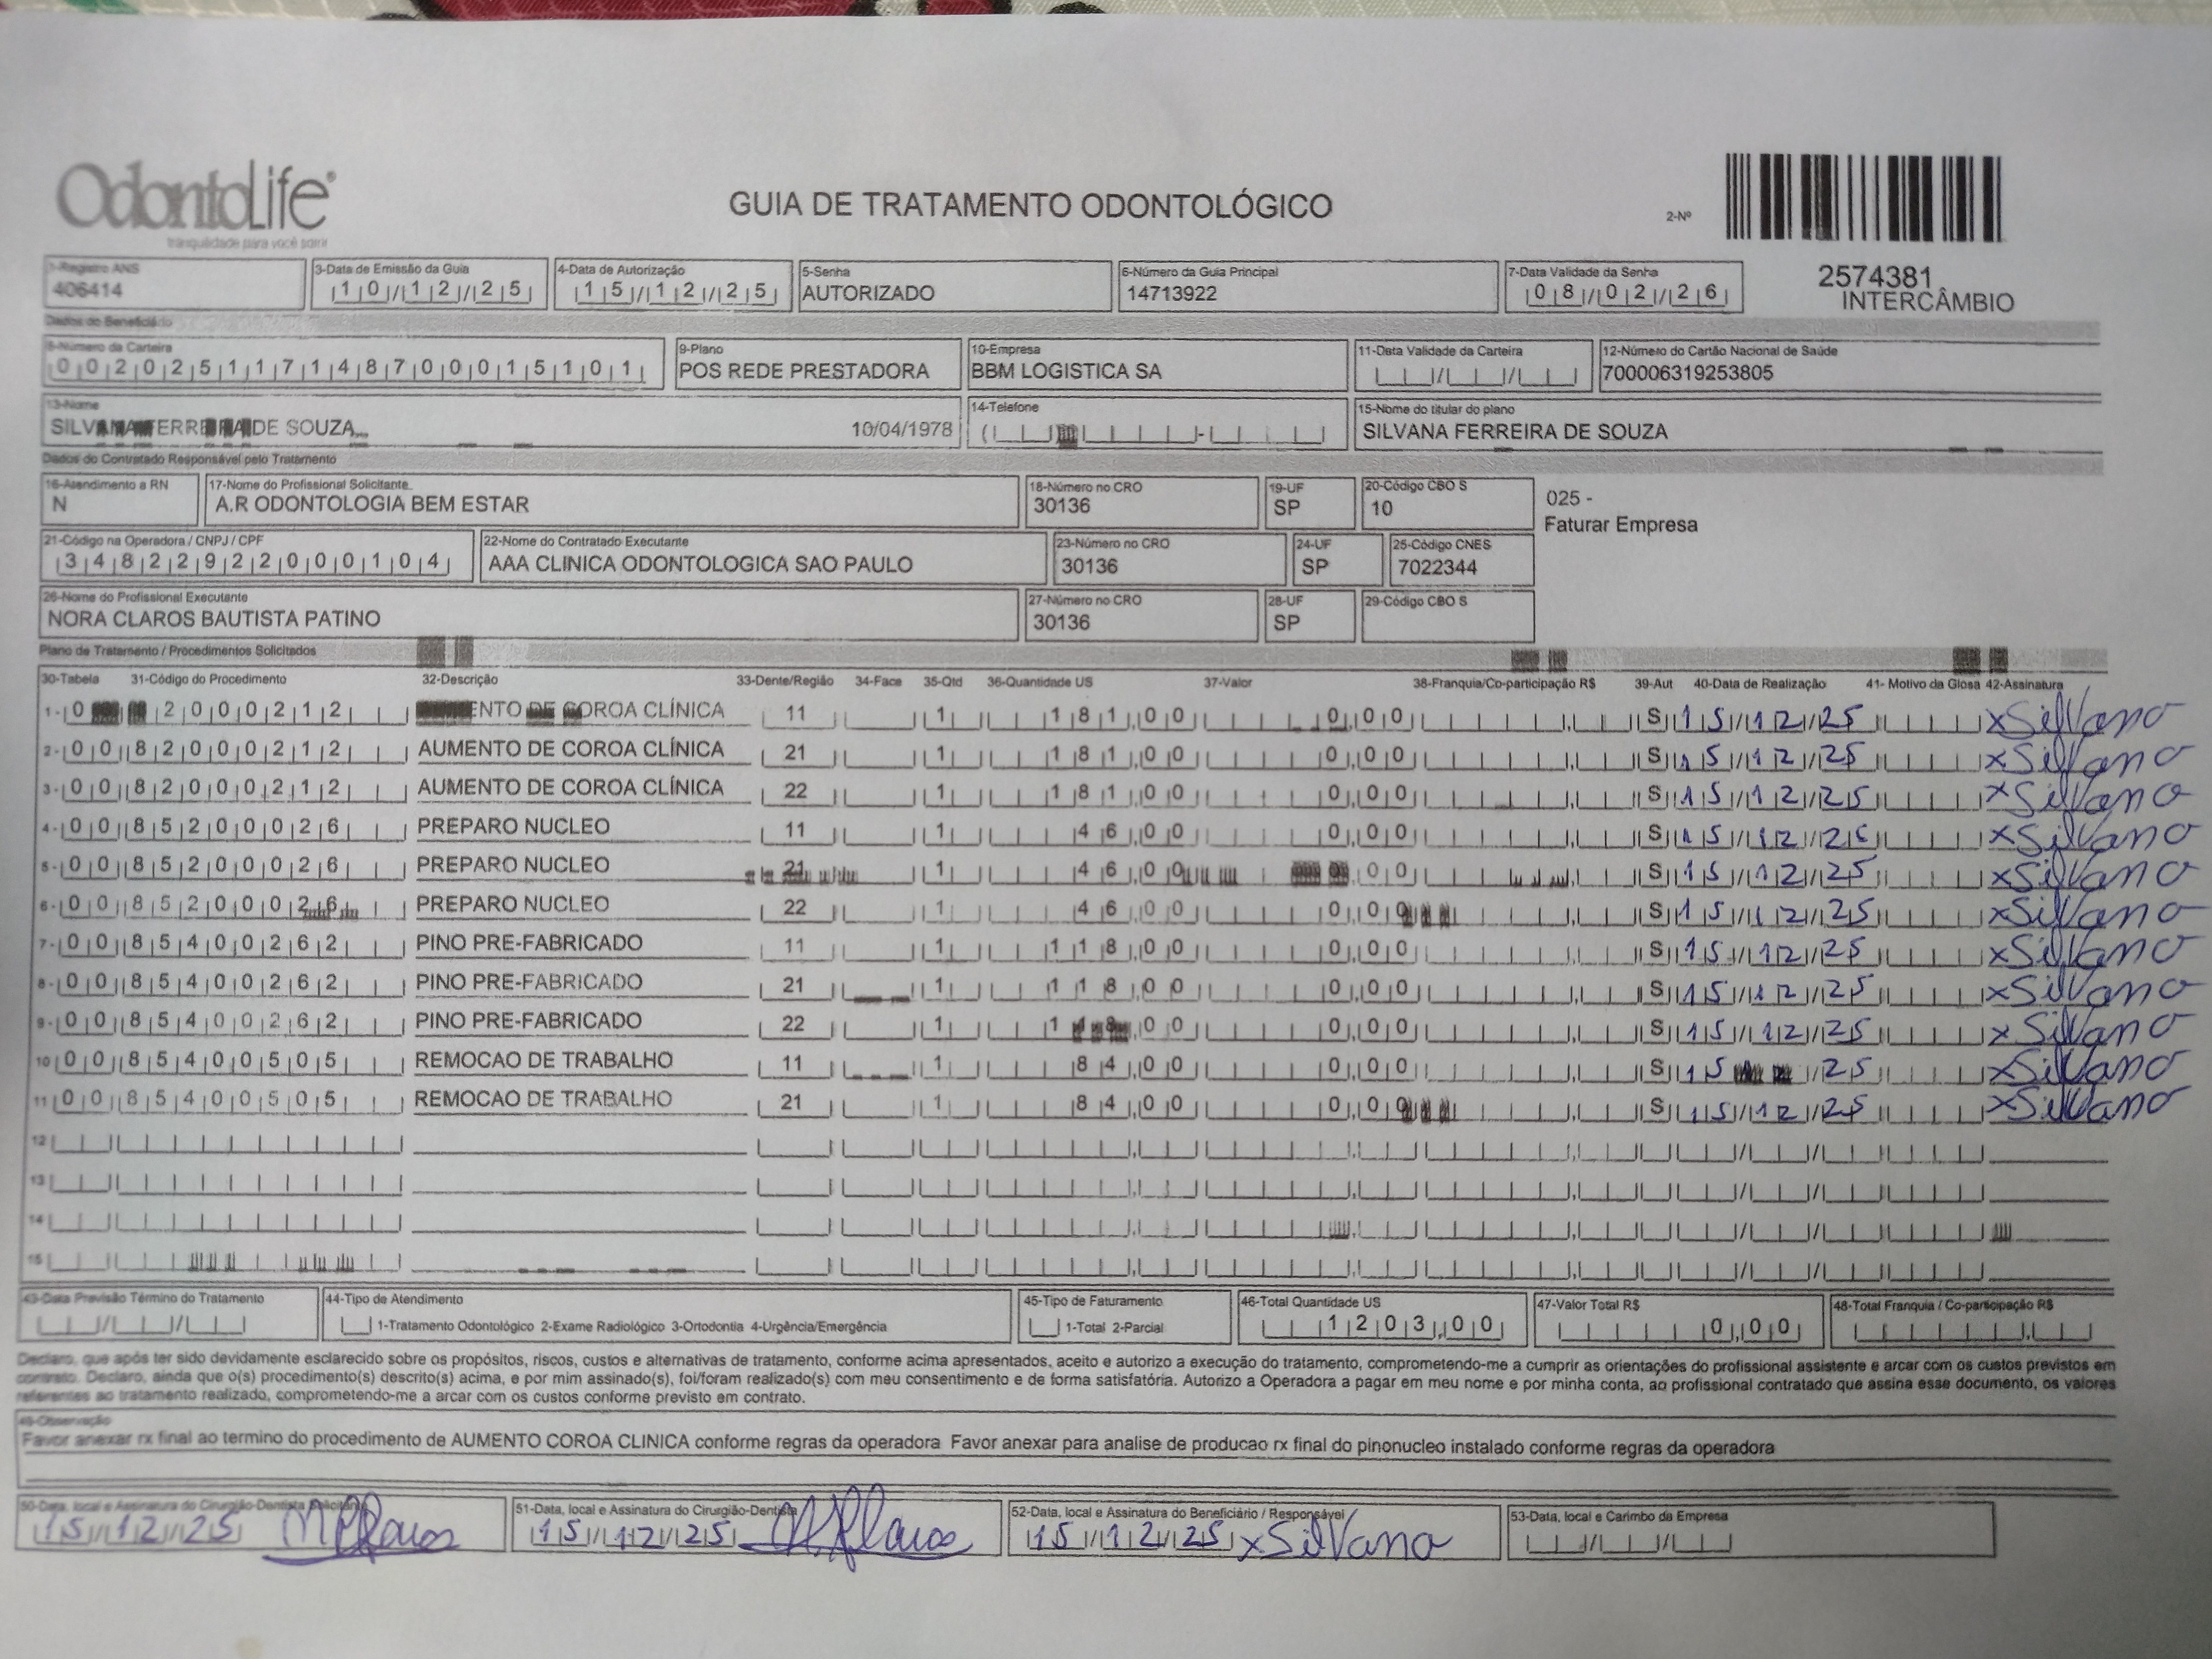 OdontoLife®
tranquilidade para você sorrir
GUIA DE TRATAMENTO ODONTOLÓGICO
2-Nº
2574381
INTERCÂMBIO
1-Registro ANS 3-Data de Emissão da Guia 4-Data de Autorização 5-Senha 6-Número da Guia Principal 7-Data Validade da Senha
406414 10/12/25 15/12/25 AUTORIZADO 14713922 08/02/26
Dados do Beneficiário
8-Número da Carteira 9-Plano 10-Empresa 11-Data Validade da Carteira 12-Número do Cartão Nacional de Saúde
002025117148700015101 POS REDE PRESTADORA BBM LOGISTICA SA 700006319253805
13-Nome 14-Telefone 15-Nome do titular do plano
SILVANA FERREIRA DE SOUZA 10/04/1978 SILVANA FERREIRA DE SOUZA
Dados do Contratado Responsável pelo Tratamento
16-Atendimento a RN 17-Nome do Profissional Solicitante 18-Número no CRO 19-UF 20-Código CBO S
N A.R ODONTOLOGIA BEM ESTAR 30136 SP 10
025 -
Faturar Empresa
21-Código na Operadora / CNPJ / CPF 22-Nome do Contratado Executante 23-Número no CRO 24-UF 25-Código CNES
34822922000104 AAA CLINICA ODONTOLOGICA SAO PAULO 30136 SP 7022344
26-Nome do Profissional Executante 27-Número no CRO 28-UF 29-Código CBO S
NORA CLAROS BAUTISTA PATINO 30136 SP
Plano de Tratamento / Procedimentos Solicitados
30-Tabela 31-Código do Procedimento 32-Descrição 33-Dente/Região 34-Face 35-Qtd 36-Quantidade US 37-Valor 38-Franquia/Co-participação R$ 39-Aut 40-Data de Realização 41- Motivo da Glosa 42-Assinatura
1- 0 2000212 COROA CLÍNICA 11 1 181,00 0,00 S 15/12/25 xSilvano
2- 00 82000212 AUMENTO DE COROA CLÍNICA 21 1 181,00 0,00 S 15/12/25 xSilvano
3- 00 82000212 AUMENTO DE COROA CLÍNICA 22 1 181,00 0,00 S 15/12/25 xSilvano
4- 00 85200026 PREPARO NUCLEO 11 1 46,00 0,00 S 15/12/26 xSilvano
5- 00 85200026 PREPARO NUCLEO 21 1 46,00 ,00 S 15/12/25 xSilvano
6- 00 85200026 PREPARO NUCLEO 22 1 46,00 0,00 S 15/12/25 xSilvano
7- 00 85400262 PINO PRE-FABRICADO 11 1 118,00 0,00 S 15/12/25 xSilvano
8- 00 85400262 PINO PRE-FABRICADO 21 1 118,00 0,00 S 15/12/25 xSilvano
9- 00 85400262 PINO PRE-FABRICADO 22 1 118,00 0,00 S 15/12/25 xSilvano
10 00 85400505 REMOCAO DE TRABALHO 11 1 84,00 0,00 S 15 /25 xSilvano
11 00 85400505 REMOCAO DE TRABALHO 21 1 84,00 0,00 S 15/12/25 xSilvano
12
13
14
15
43-Data Previsão Término do Tratamento 44-Tipo de Atendimento 45-Tipo de Faturamento 46-Total Quantidade US 47-Valor Total R$ 48-Total Franquia / Co-participação R$
1-Tratamento Odontológico 2-Exame Radiológico 3-Ortodontia 4-Urgência/Emergência 1-Total 2-Parcial 1203,00 0,00
Declaro, que após ter sido devidamente esclarecido sobre os propósitos, riscos, custos e alternativas de tratamento, conforme acima apresentados, aceito e autorizo a execução do tratamento, comprometendo-me a cumprir as orientações do profissional assistente e arcar com os custos previstos em
contrato. Declaro, ainda que o(s) procedimento(s) descrito(s) acima, e por mim assinado(s), foi/foram realizado(s) com meu consentimento e de forma satisfatória. Autorizo a Operadora a pagar em meu nome e por minha conta, ao profissional contratado que assina esse documento, os valores
referentes ao tratamento realizado, comprometendo-me a arcar com os custos conforme previsto em contrato.
49-Observação
Favor anexar rx final ao termino do procedimento de AUMENTO COROA CLINICA conforme regras da operadora Favor anexar para analise de producao rx final do pinonucleo instalado conforme regras da operadora
50-Data, local e Assinatura do Cirurgião-Dentista Solicitante 51-Data, local e Assinatura do Cirurgião-Dentista 52-Data, local e Assinatura do Beneficiário / Responsável 53-Data, local e Carimbo da Empresa
15/12/25 15/12/25 15/12/25 xSilvano